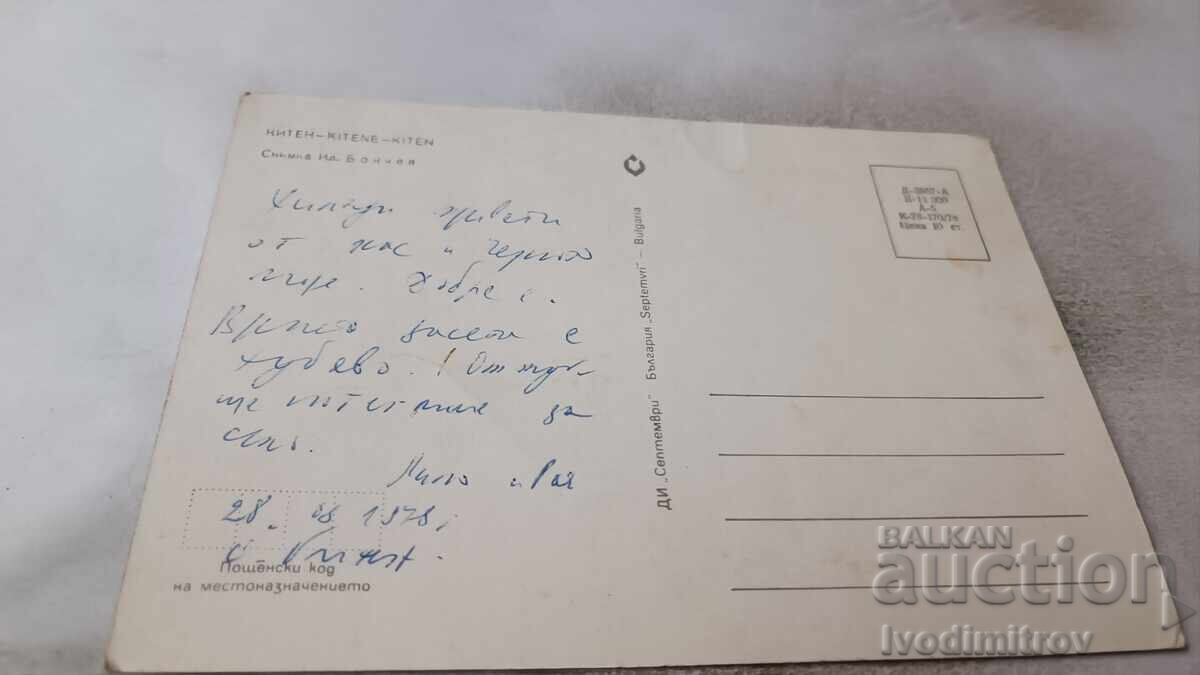 КИТЕН–KITENE–KITEN
Снимка Ил. Бончев
Хиляди привети
от нас и Черно
море. Добре е.
Времето засега е
хубаво. От тук
ще за
28. 08 1978г
с. Китен.
Пощенски код
на местоназначението
ДИ „Септември" България „Septemvri" – Bulgaria
Д-3967-А
П-11 000
А-5
К-78-170/78
Цена 10 ст.
BALKAN
auction
Ivodimitrov